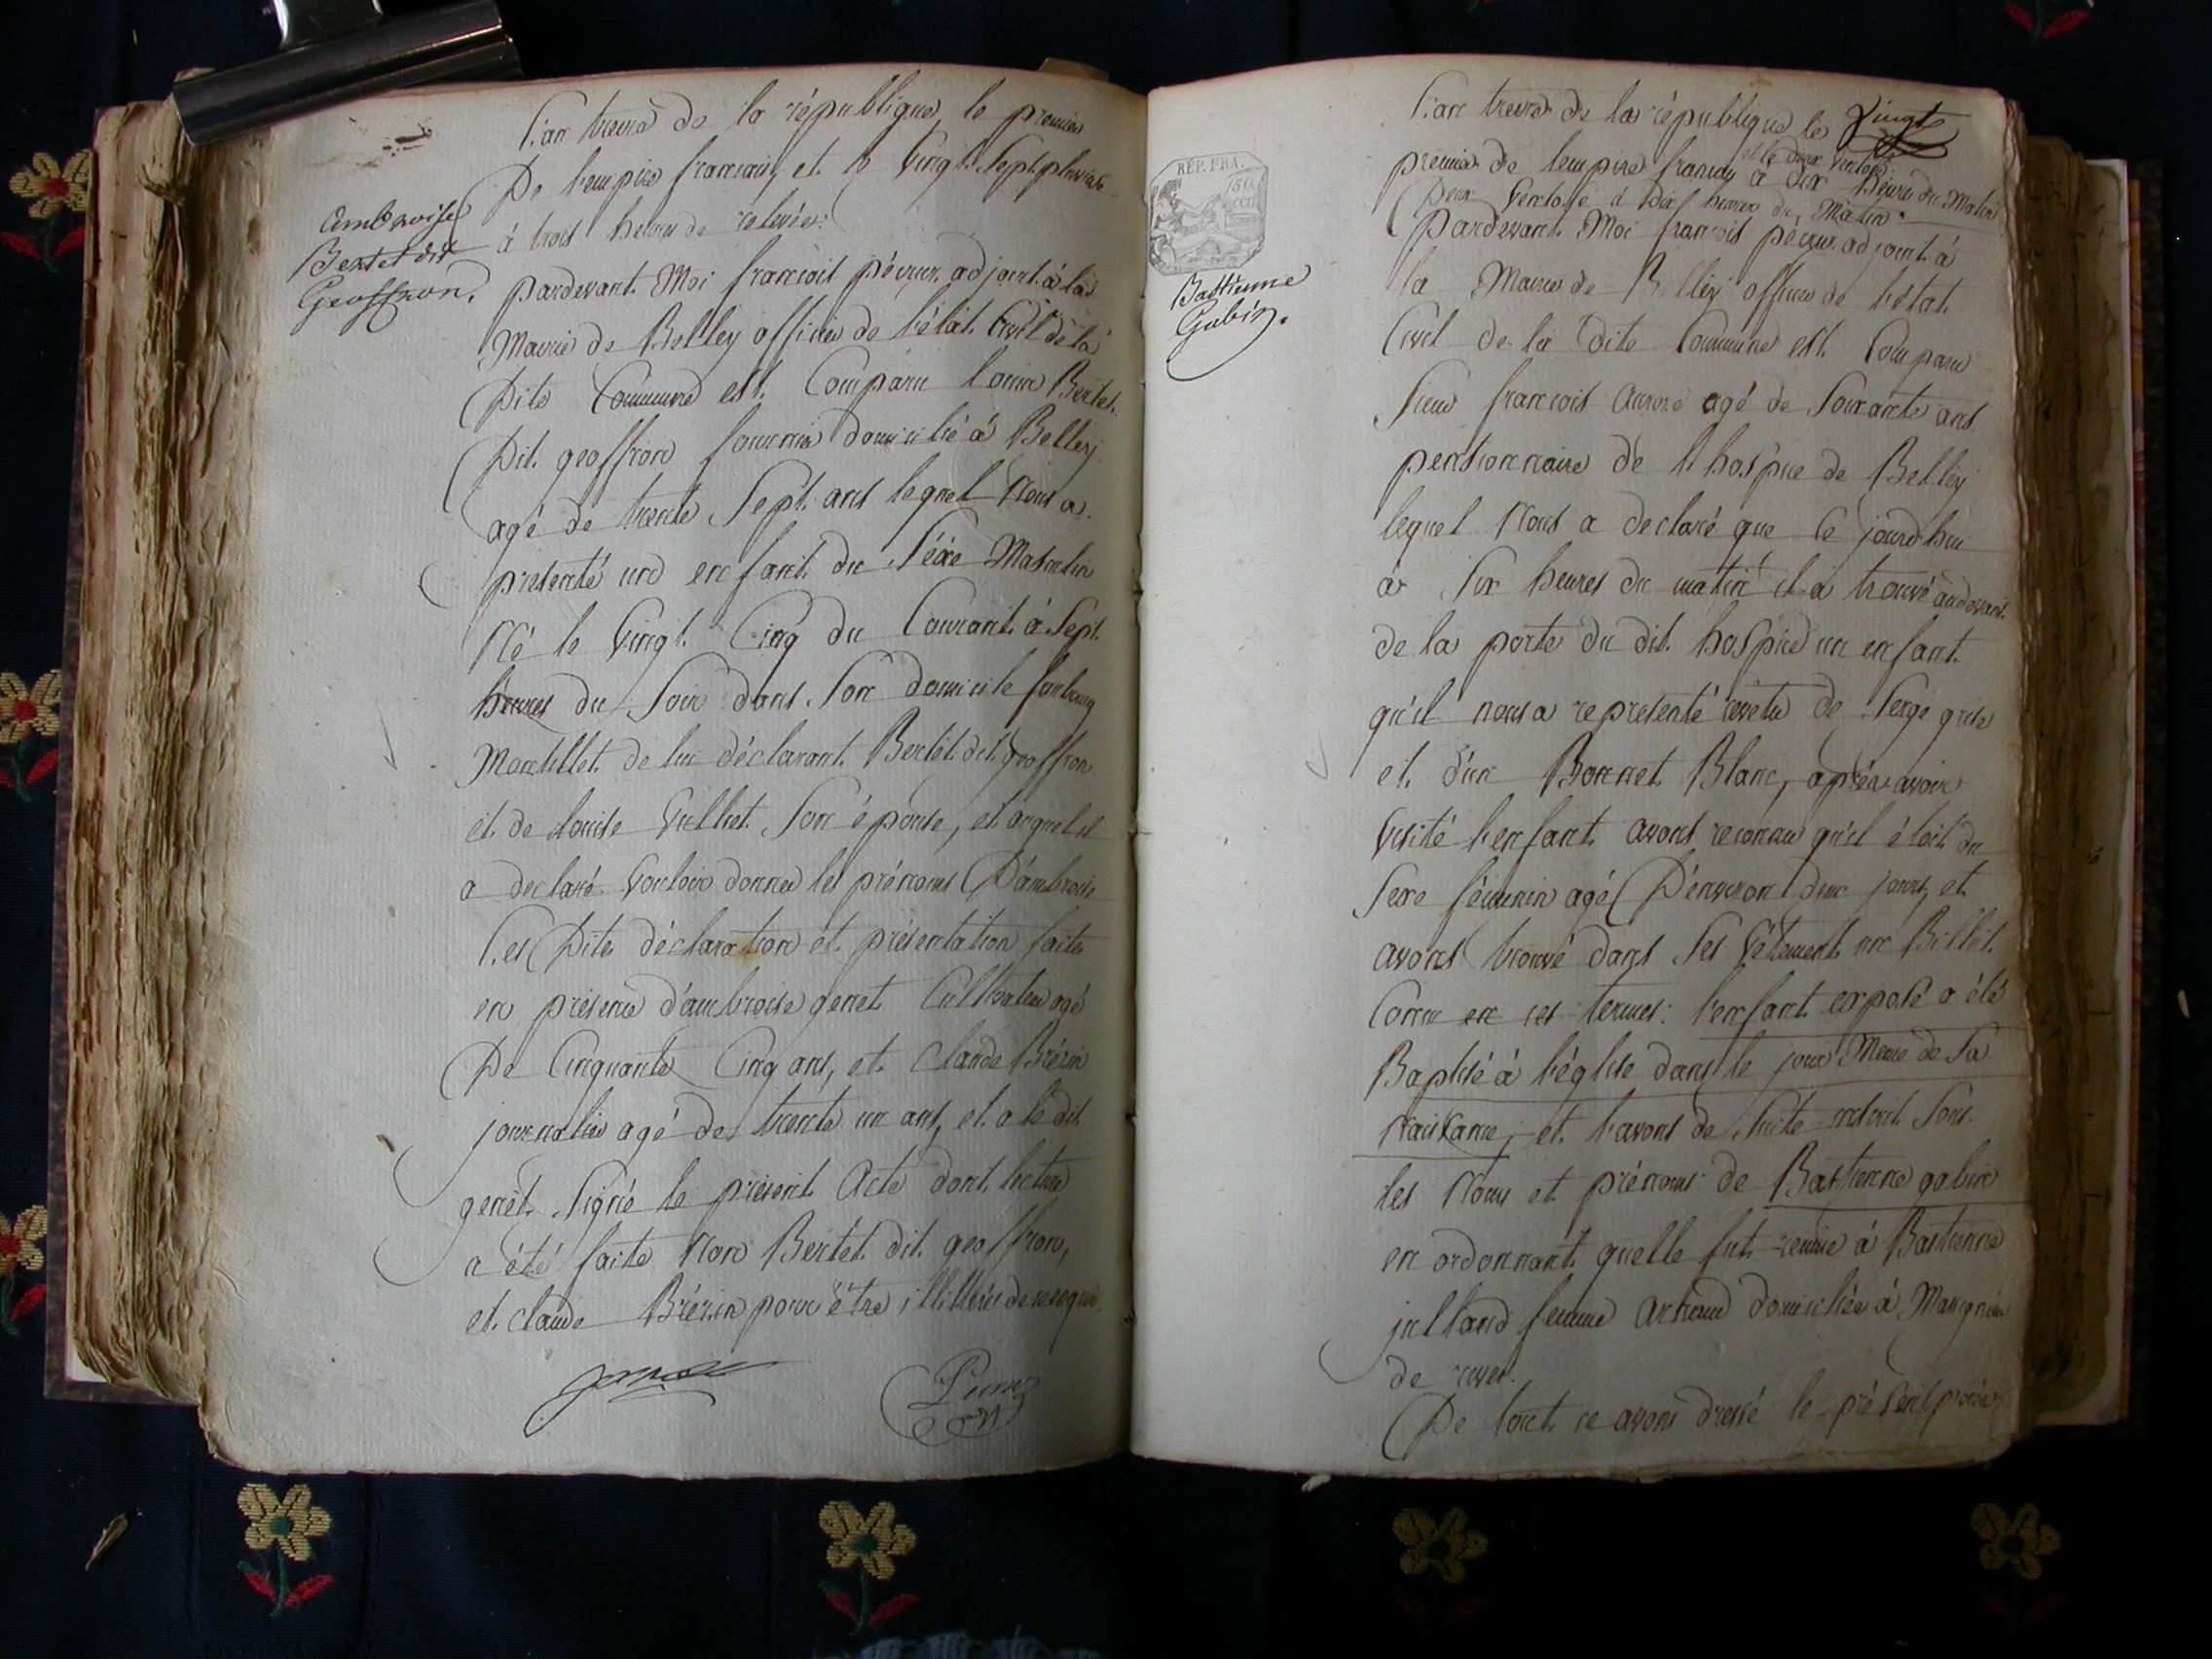 L'an treize de la république, le premier
De l'empire francais, et le Vingt Sept pluviose
à trois heures de relevée.
Ambroise
Bertet dit
Geoffron.
pardevant Moi francois pécoux adjoint à la
Mairie de Belley officier de l'état Civil de la
Dite Commune est Comparu Bertet
Dit geoffron domicilié à Belley
agé de trente Sept ans lequel Nous a
presenté un enfant du Séxe Masculin
Né le Vingt Cinq du Courant à Sept
heures du Soir dans Son domicile faubourg
de lui déclarant Bertet dit geoffron
et de louise Son épouse, et auquel il
a declaré Vouloir donner les prénoms D'ambroise
Les Dites déclaration et présentation faites
en présence d'ambroise genet Cultivateur agé
De Cinquante Cinq ans, et Claude Brézin
journalier agé de trente un ans, et a le dit
genet Signé le présent Acte dont lecture
a été faite Non Bertet dit geoffron,
et claude Brézin pour être illitterés de ce requis
L'an treize de la république le Vingt
premier de l'empire francais et le deux Ventose à dix heures du Matin
Deux Ventose à Dix heures du Matin
RÉP. FRA.
50
cen
Bastienne
Gabin.
pardevant Moi francois adjoint à
la Mairie de Belley officier de l'état
Civil de la dite Commune est Comparu
Sieur francois agé de Soixante ans
pensionnaire de l'hospice de Belley
lequel Nous a declaré que Ce jourd'hui
à Six heures du matin il a trouvé audevant
de la porte du dit hospice un enfant
qu'il nous a representé vetu de Serge grise
et d'un Bonnet Blanc, après avoir
Visité l'enfant avons reconnu qu'il étoit du
Sexe féminin agé D'environ deux jours, et
avons trouvé dans Ses Vêtements un Billet
Concu en ces termes: l'enfant exposé a été
Baptisé à l'église dans le jour Meme de Sa
Naissance, et l'avons de Suite inscrit Sous
les Noms et prénoms de Bastienne gabin
en ordonnant quelle fut remise à Bastienne
julland femme domiciliée à Massignieu
de rives.
De tout ce avons dressé le présent procès